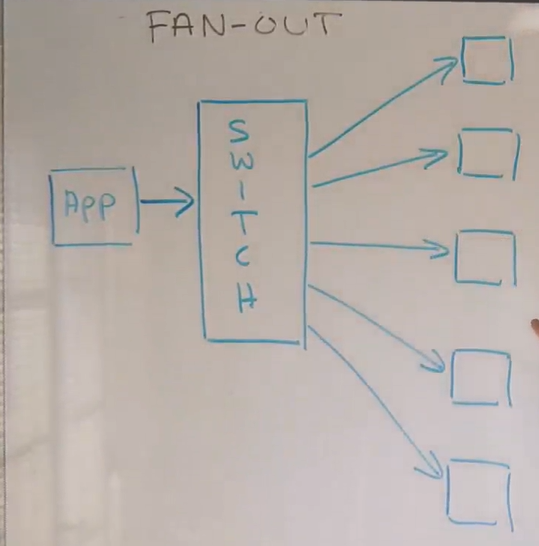 FAN-OUT
App
SWITCH